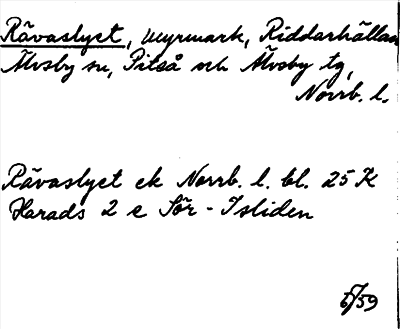 Rävaslyet, myrmark, Riddarhällan
Älvsby sn, Piteå och Älvsby tg,
Norrb. l.
Rävaslyet ek Norrb. l. bl. 25 K
Harads 2 e Sör-Isliden
6/59